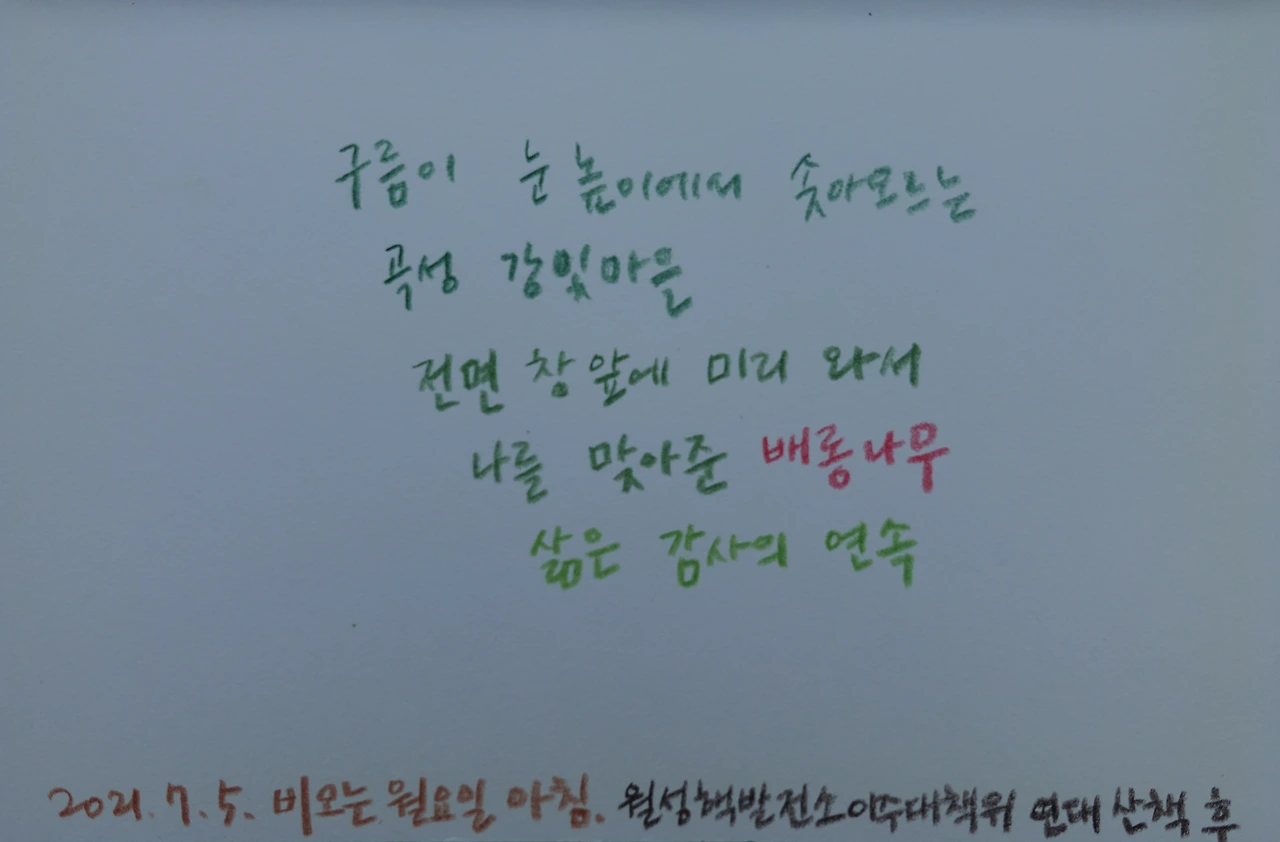 구름이 눈높이에서 솟아오르는
곡성 강빛마을
전면 창 앞에 미리 와서
나를 맞아준 배롱나무
삶은 감사의 연속
2021. 7. 5. 비오는 월요일 아침. 월성핵발전소이주대책위 연대 산책 후